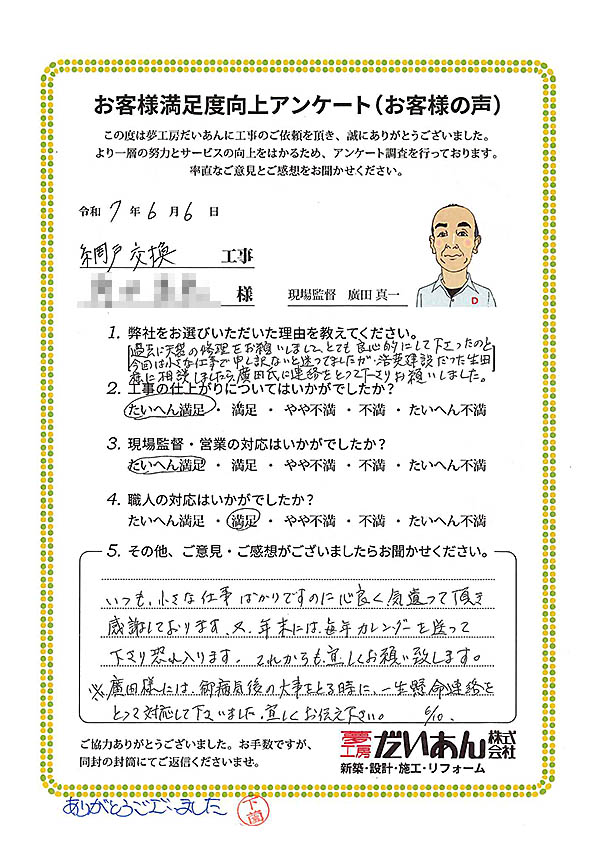 お客様満足度向上アンケート（お客様の声）
この度は夢工房だいあんに工事のご依頼を頂き、誠にありがとうございました。
より一層の努力とサービスの向上をはかるため、アンケート調査を行っております。
率直なご意見とご感想をお聞かせください。
令和 7 年 6 月 6 日
網戸交換 工事
様 現場監督 廣田 真一
D
1. 弊社をお選びいただいた理由を教えてください。
過去に天窓の修理をお願いしまして、とても良心的にして下さったのと
今回は小さな仕事で申し訳ないと迷ってましたが、浩英建設だった生田
様に相談しましたら、廣田氏に連絡をとって下さりお願いしました。
2. 工事の仕上がりについてはいかがでしたか？
たいへん満足 ・ 満足 ・ やや不満 ・ 不満 ・ たいへん不満
3. 現場監督・営業の対応はいかがでしたか？
たいへん満足 ・ 満足 ・ やや不満 ・ 不満 ・ たいへん不満
4. 職人の対応はいかがでしたか？
たいへん満足 ・ 満足 ・ やや不満 ・ 不満 ・ たいへん不満
5. その他、ご意見・ご感想がございましたらお聞かせください。
いつも、小さな仕事ばかりですのに心良く気遣って頂き
感謝しております、又、年末には、毎年カレンダーを送って
下さり恐れ入ります。これからも、宜しくお願い致します。
※廣田様には、御病気後の大事をとる時に、一生懸命連絡を
とって対応して下さいました、宜しくお伝え下さい。 6/10.
ご協力ありがとうございました。お手数ですが、
同封の封筒にてご返信くださいませ。
夢工房 だいあん 株式会社
新築・設計・施工・リフォーム
ありがとうございました 下薗